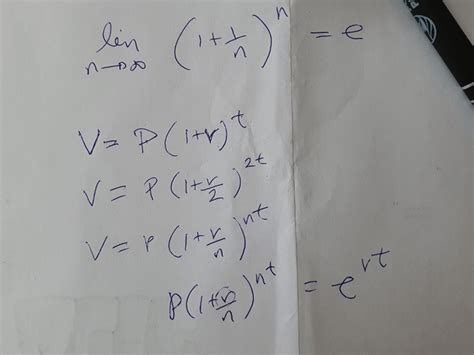 lim n→∞ (1+1/n)^n = e
V = P(1+r)^t
V = P(1+r/2)^2t
V = P(1+r/n)^nt
P(1+r/n)^nt = e^rt